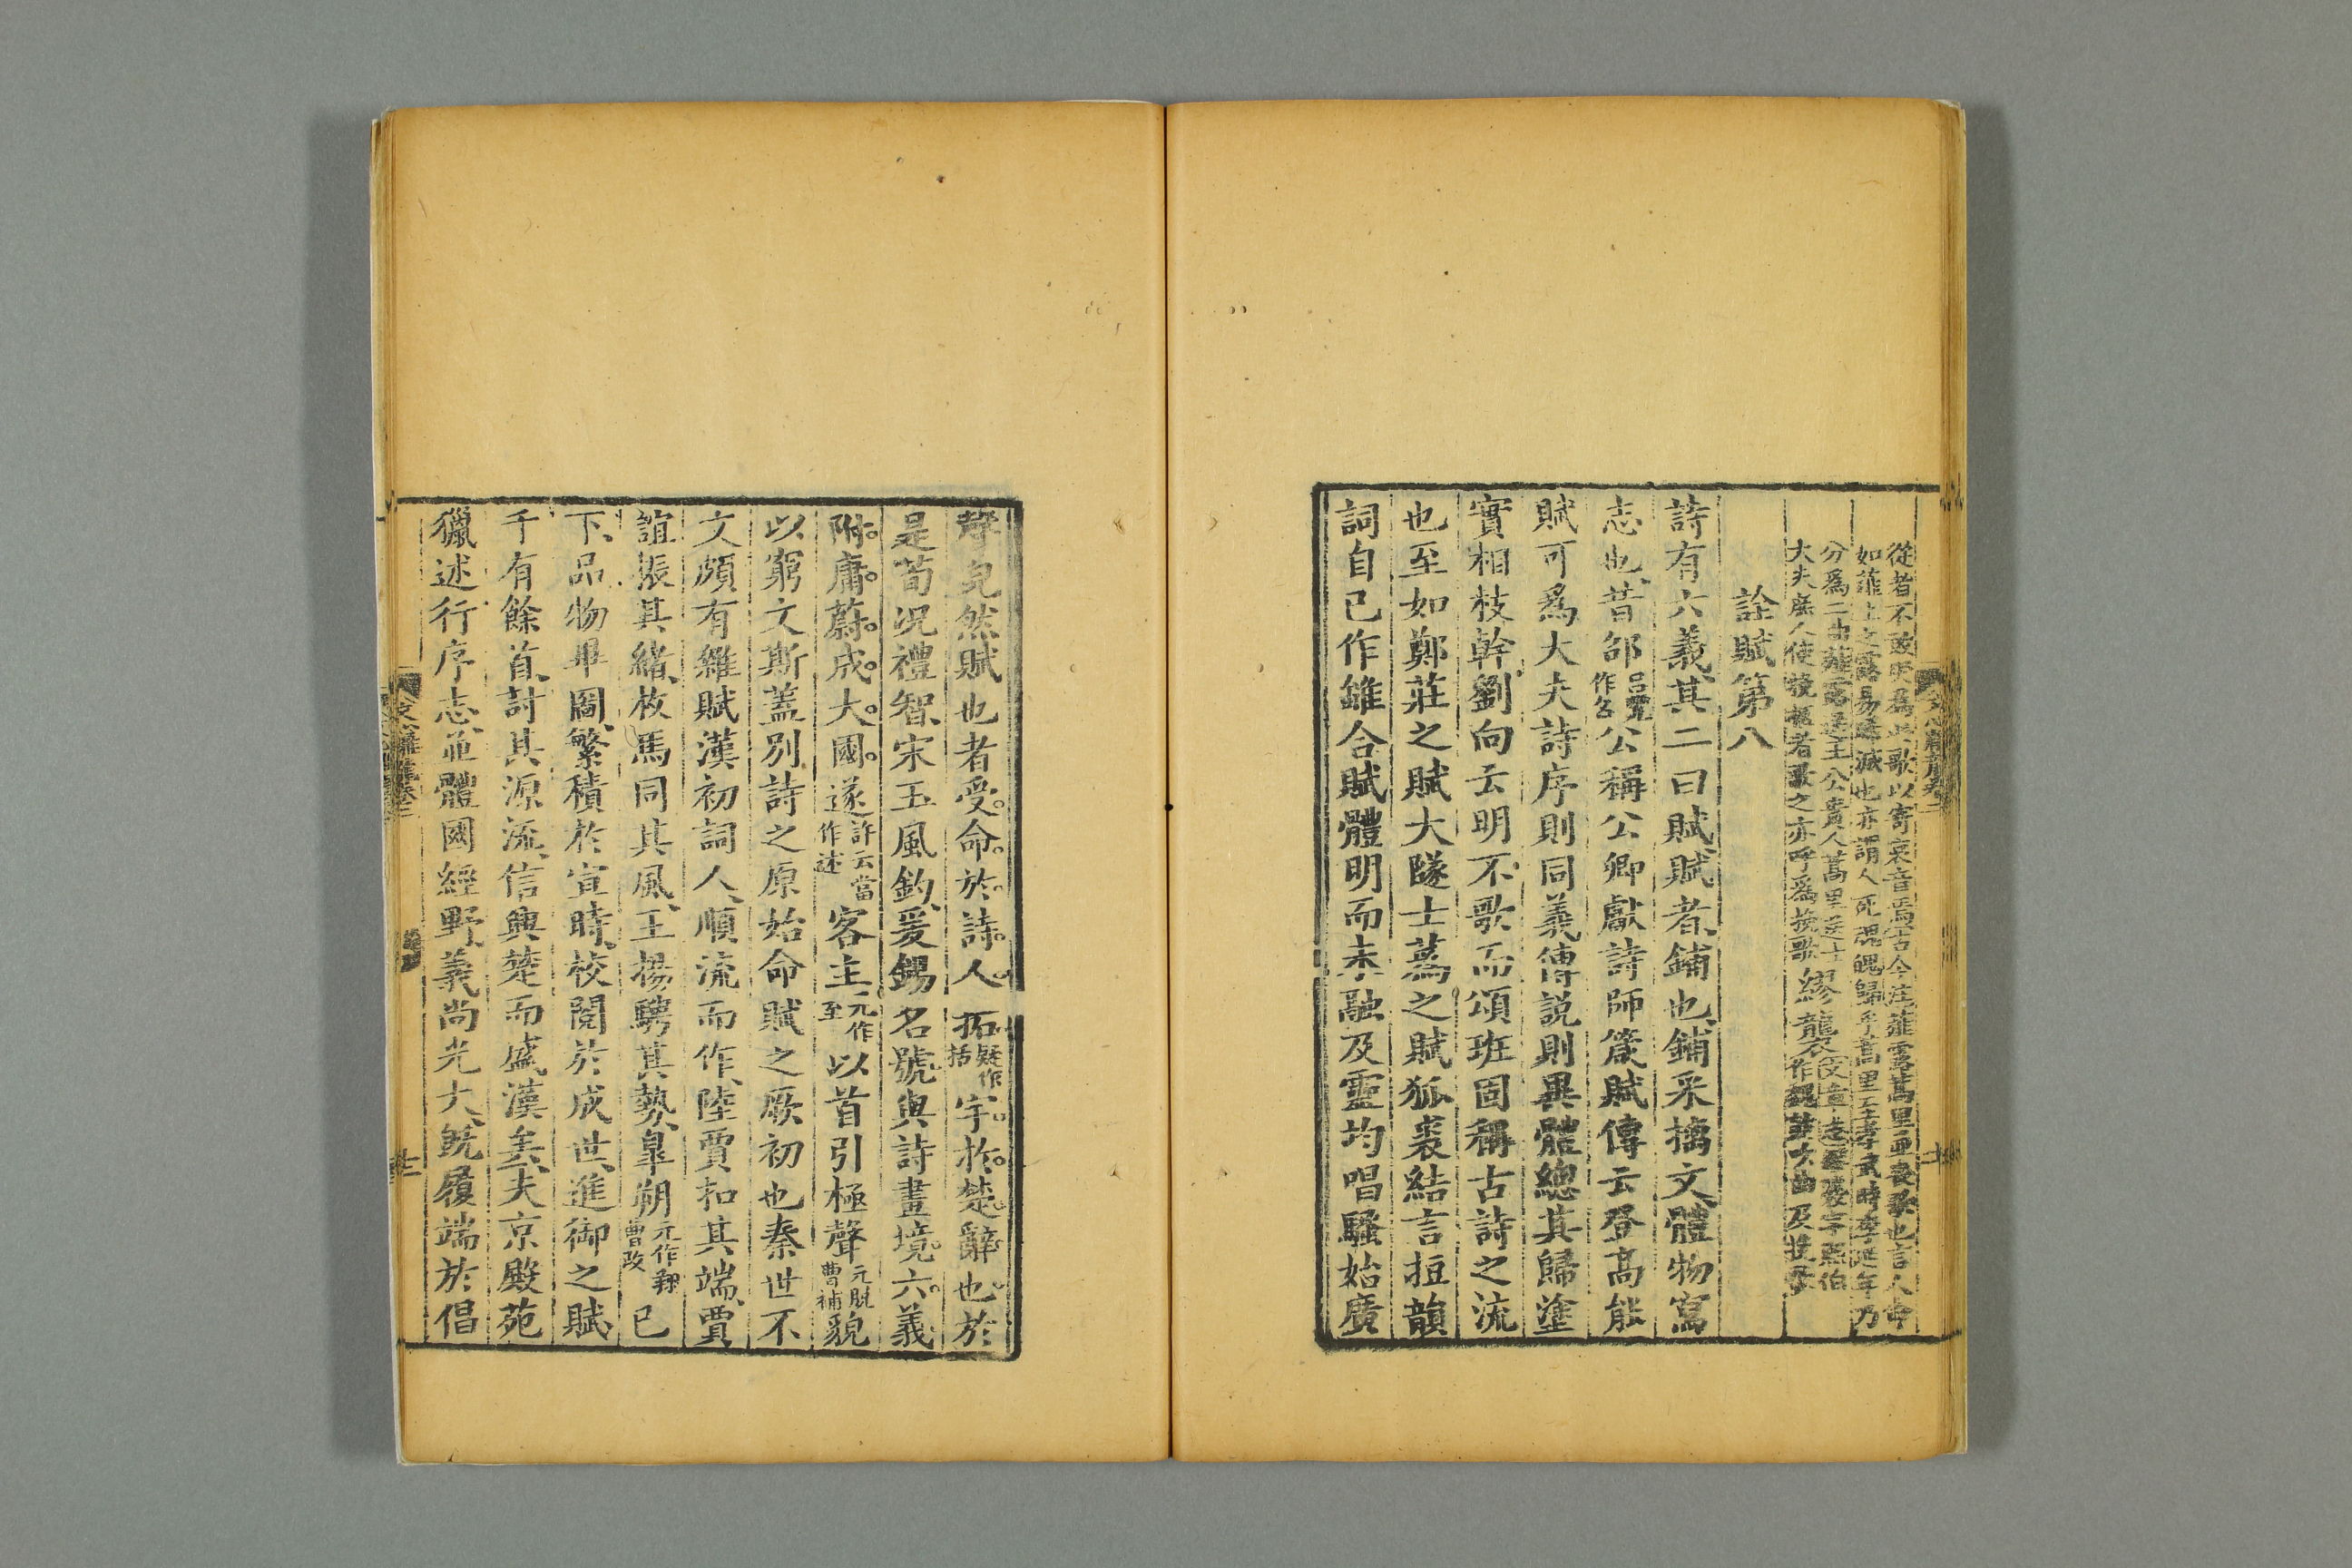 從者不敢哭爲此歌以寄哀音焉古今注薤露蒿里並喪歌也言人命
如薤上之露易晞滅也亦謂人死魂魄歸乎蒿里至孝武時李延年乃
分爲二曲薤露送王公貴人蒿里送士
大夫庶人使挽柩者歌之亦呼爲挽歌
繆襲
文章志繆襲字熙伯
作魏鼓吹曲及挽歌
詮賦第八
詩有六義其二曰賦賦者鋪也鋪采摛文體物寫
志也昔邵呂覽作召公稱公卿獻詩師箴賦傳云登高能
賦可爲大夫詩序則同義傳説則異體總其歸塗
實相枝幹劉向云明不歌而頌班固稱古詩之流
也至如鄭莊之賦大隧士蒍之賦狐裘結言拒韻
詞自已作雖合賦體明而未融及靈均唱騷始廣
聲皃然賦也者受命於詩人拓疑作括宇於楚辭也於
是荀况禮智宋玉風釣爰錫名號與詩畫境六義
附庸蔚成大國遂許云當作述客主元作至以首引極聲元脱曹補貌
以窮文斯盖別詩之原始命賦之厥初也秦世不
文頗有雜賦漢初詞人順流而作陸賈扣其端賈
誼振其緒枚馬同其風王揚騁其勢臯朔元作翔曹改已
下品物畢圖繁積於宣時校閲於成世進御之賦
千有餘首討其源流信興楚而盛漢矣夫京殿苑
獵述行序志並體國經野義尚光大旣履端於倡
文心雕龍卷二